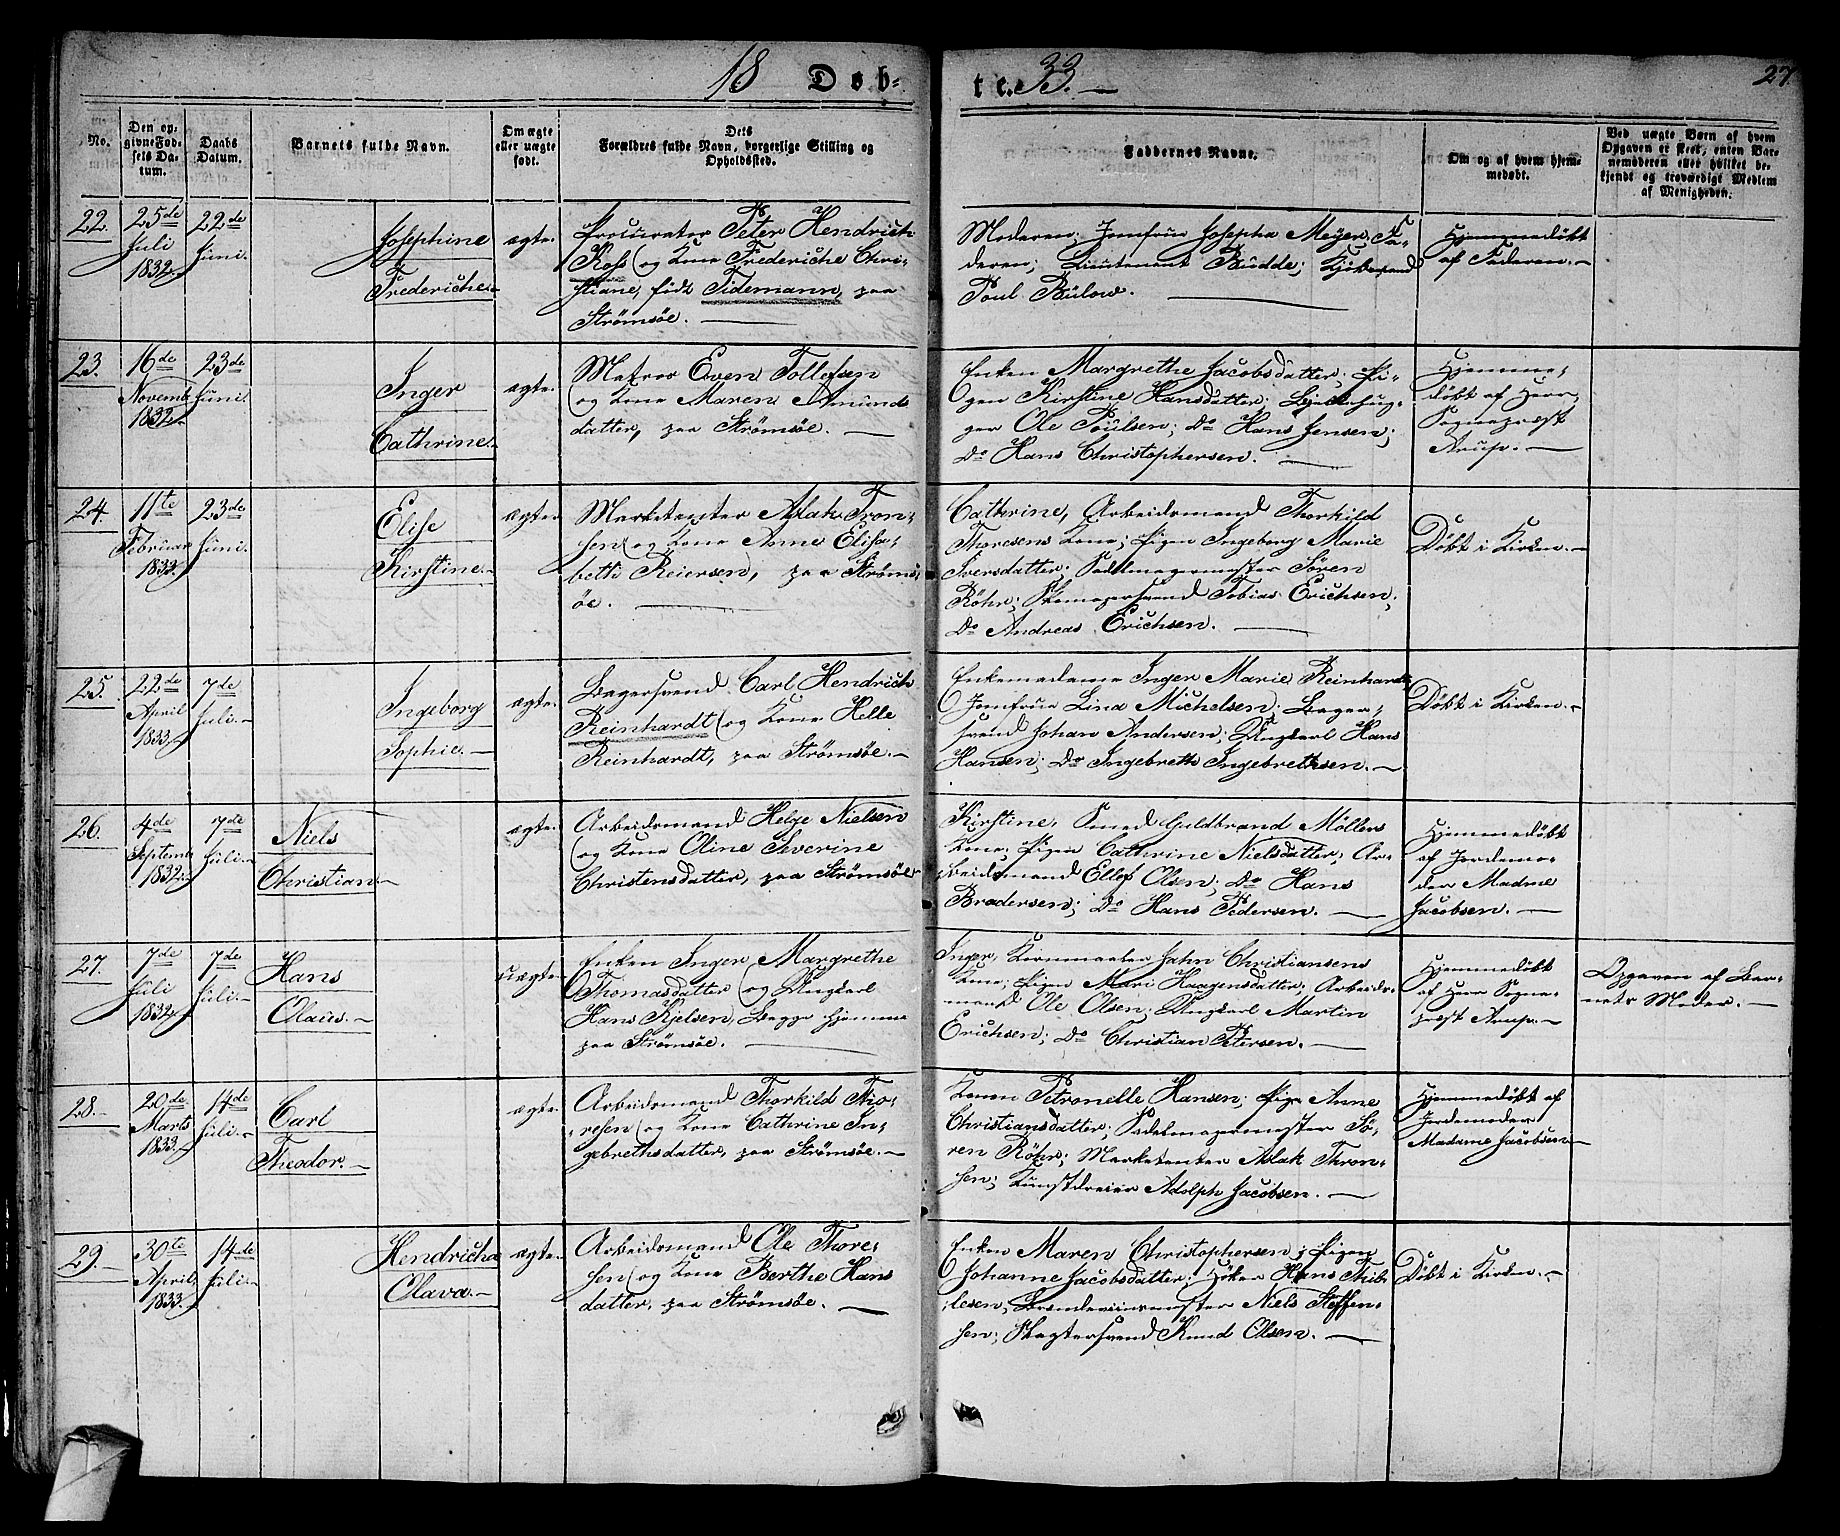 18 Døb-
te. 33.
27
No.
Den opgivne Fødsels Datum.
Daabs Datum.
Barnets fulde Navn.
Om ægte eller uægte født.
Forældres fulde Navn, borgerlige Stilling og Opholdssted.
Faddernes Navne.
Om og af hvem hjemmedøbt.
Ved uægte Børn af hvem Opgaven er skeet, enten Barnemoderen eller hvilket bekjendt og troværdigt Medlem af Menigheden.
22. 25de Juli 1832. 22de Juni.
Josephine
Frederiche.
ægte.
Procurator Peter Hendrich
Ross og Kone Frederiche Chri-
stiane, født Tidemann, paa
Strømsøe.
Moderen; Jomfrue Josepha Meyer; Fa-
deren; Lieutenant Budde;
Poul Bülow.
Hjemmedøbt
af Faderen.
23. 16de Novemb 1832. 23de Juni.
Inger
Cathrine.
ægte.
Matros Even Tollefsen
og Kone Maren Amunds
datter, paa Strømsøe.
Enken Margrethe Jacobsdatter; Pi-
gen Kirstine Hansdatter;
Ole Poulsen; Do Hans Jensen;
Do Hans Christophersen.
Hjemme-
døbt af Herr
Sogneprest
Arup.
24. 11te Februar 1833. 23de Juni.
Elise
Kirstine.
ægte
Marketenter Aslak Tron-
sen og Kone Anne Elisa-
beth Reiersen, paa Strøms-
øe.
Cathrine, Arbeidsmand Thorkild
Thoresens Kone; Pigen Ingeborg Marie
Iversdatter; Sadelmagermester Søren
Röhr; Skomagersvend Tobias Erichsen;
Do Andreas Erichsen.
Døbt i Kirken.
25. 22de April 1833. 7de Juli.
Ingeborg
Sophie.
ægte.
Bagersvend Carl Hendrich
Reinhardt og Kone Helle
Reinhardt, paa Strømsøe.
Enkemadame Inger Marie Reinhardt;
Jomfrue Lina Michelsen; Bager-
svend Johan Andersen; Ungkarl Hans
Hansen; Do Ingebreth Ingebrethsen.
Døbt i Kirken.
26. 4de Septemb 1832. 7de Juli.
Niels
Christian.
ægte.
Arbeidsmand Helge Nielsen
og Kone Oline Severine
Christensdatter, paa Strømsøe
Kirstine, Smed Guldbrand Möllers
Kone; Pigen Cathrine Nielsdatter; Ar-
beidsmand Ellef Olsen; Do Hans
Brodersen; Do Hans Pedersen.
Hjemmedøbt
af Jordemo-
der Madme
Jacobsen.
27. 7de Juli 1832. 7de Juli.
Hans
Olaus.
uægte.
Enken Inger Margrethe
Thomasdatter og Ungkarl
Hans Kjelsen, begge hjemme
paa Strømsøe.
Inger, Kornmaaler Jahn Christiansens
Kone; Pigen Mari Haagensdatter; Arbeids-
mand Ole Olsen; Ungkarl Martin
Erichsen; Do Christian Petersen.
Hjemmedøbt
af Herr Sogne-
prest Arup.
Opgaven af Bar-
nets Moder.
28. 20de Marts 1833. 14de Juli.
Carl
Theodor.
ægte.
Arbeidsmand Thorkild Tho-
resen og Kone Cathrine In-
gebrethsdatter, paa Strømsøe.
Konen Petronelle Hansen; Pige Anne
Christiansdatter; Sadelmagermester Sø-
ren Röhr; Marketenter Aslak Thron-
sen; Kunstdreier Adolph Jacobsen.
Hjemmedøbt af
Jordemoder
Madame Jacobsen
29. 30te April 1833. 14de Juli.
Hendricha
Olava.
ægte.
Arbeidsmand Ole Thore-
sen og Kone Berthe Hans
datter, paa Strømsøe.
Enken Maren Christophersen; Pigen
Johanne Jacobsdatter; Høker Hans Thib-
lesen; Brændeviinsmester Niels Steffen-
sen; Slagtersvend Knud Olsen.
Døbt i Kirken.